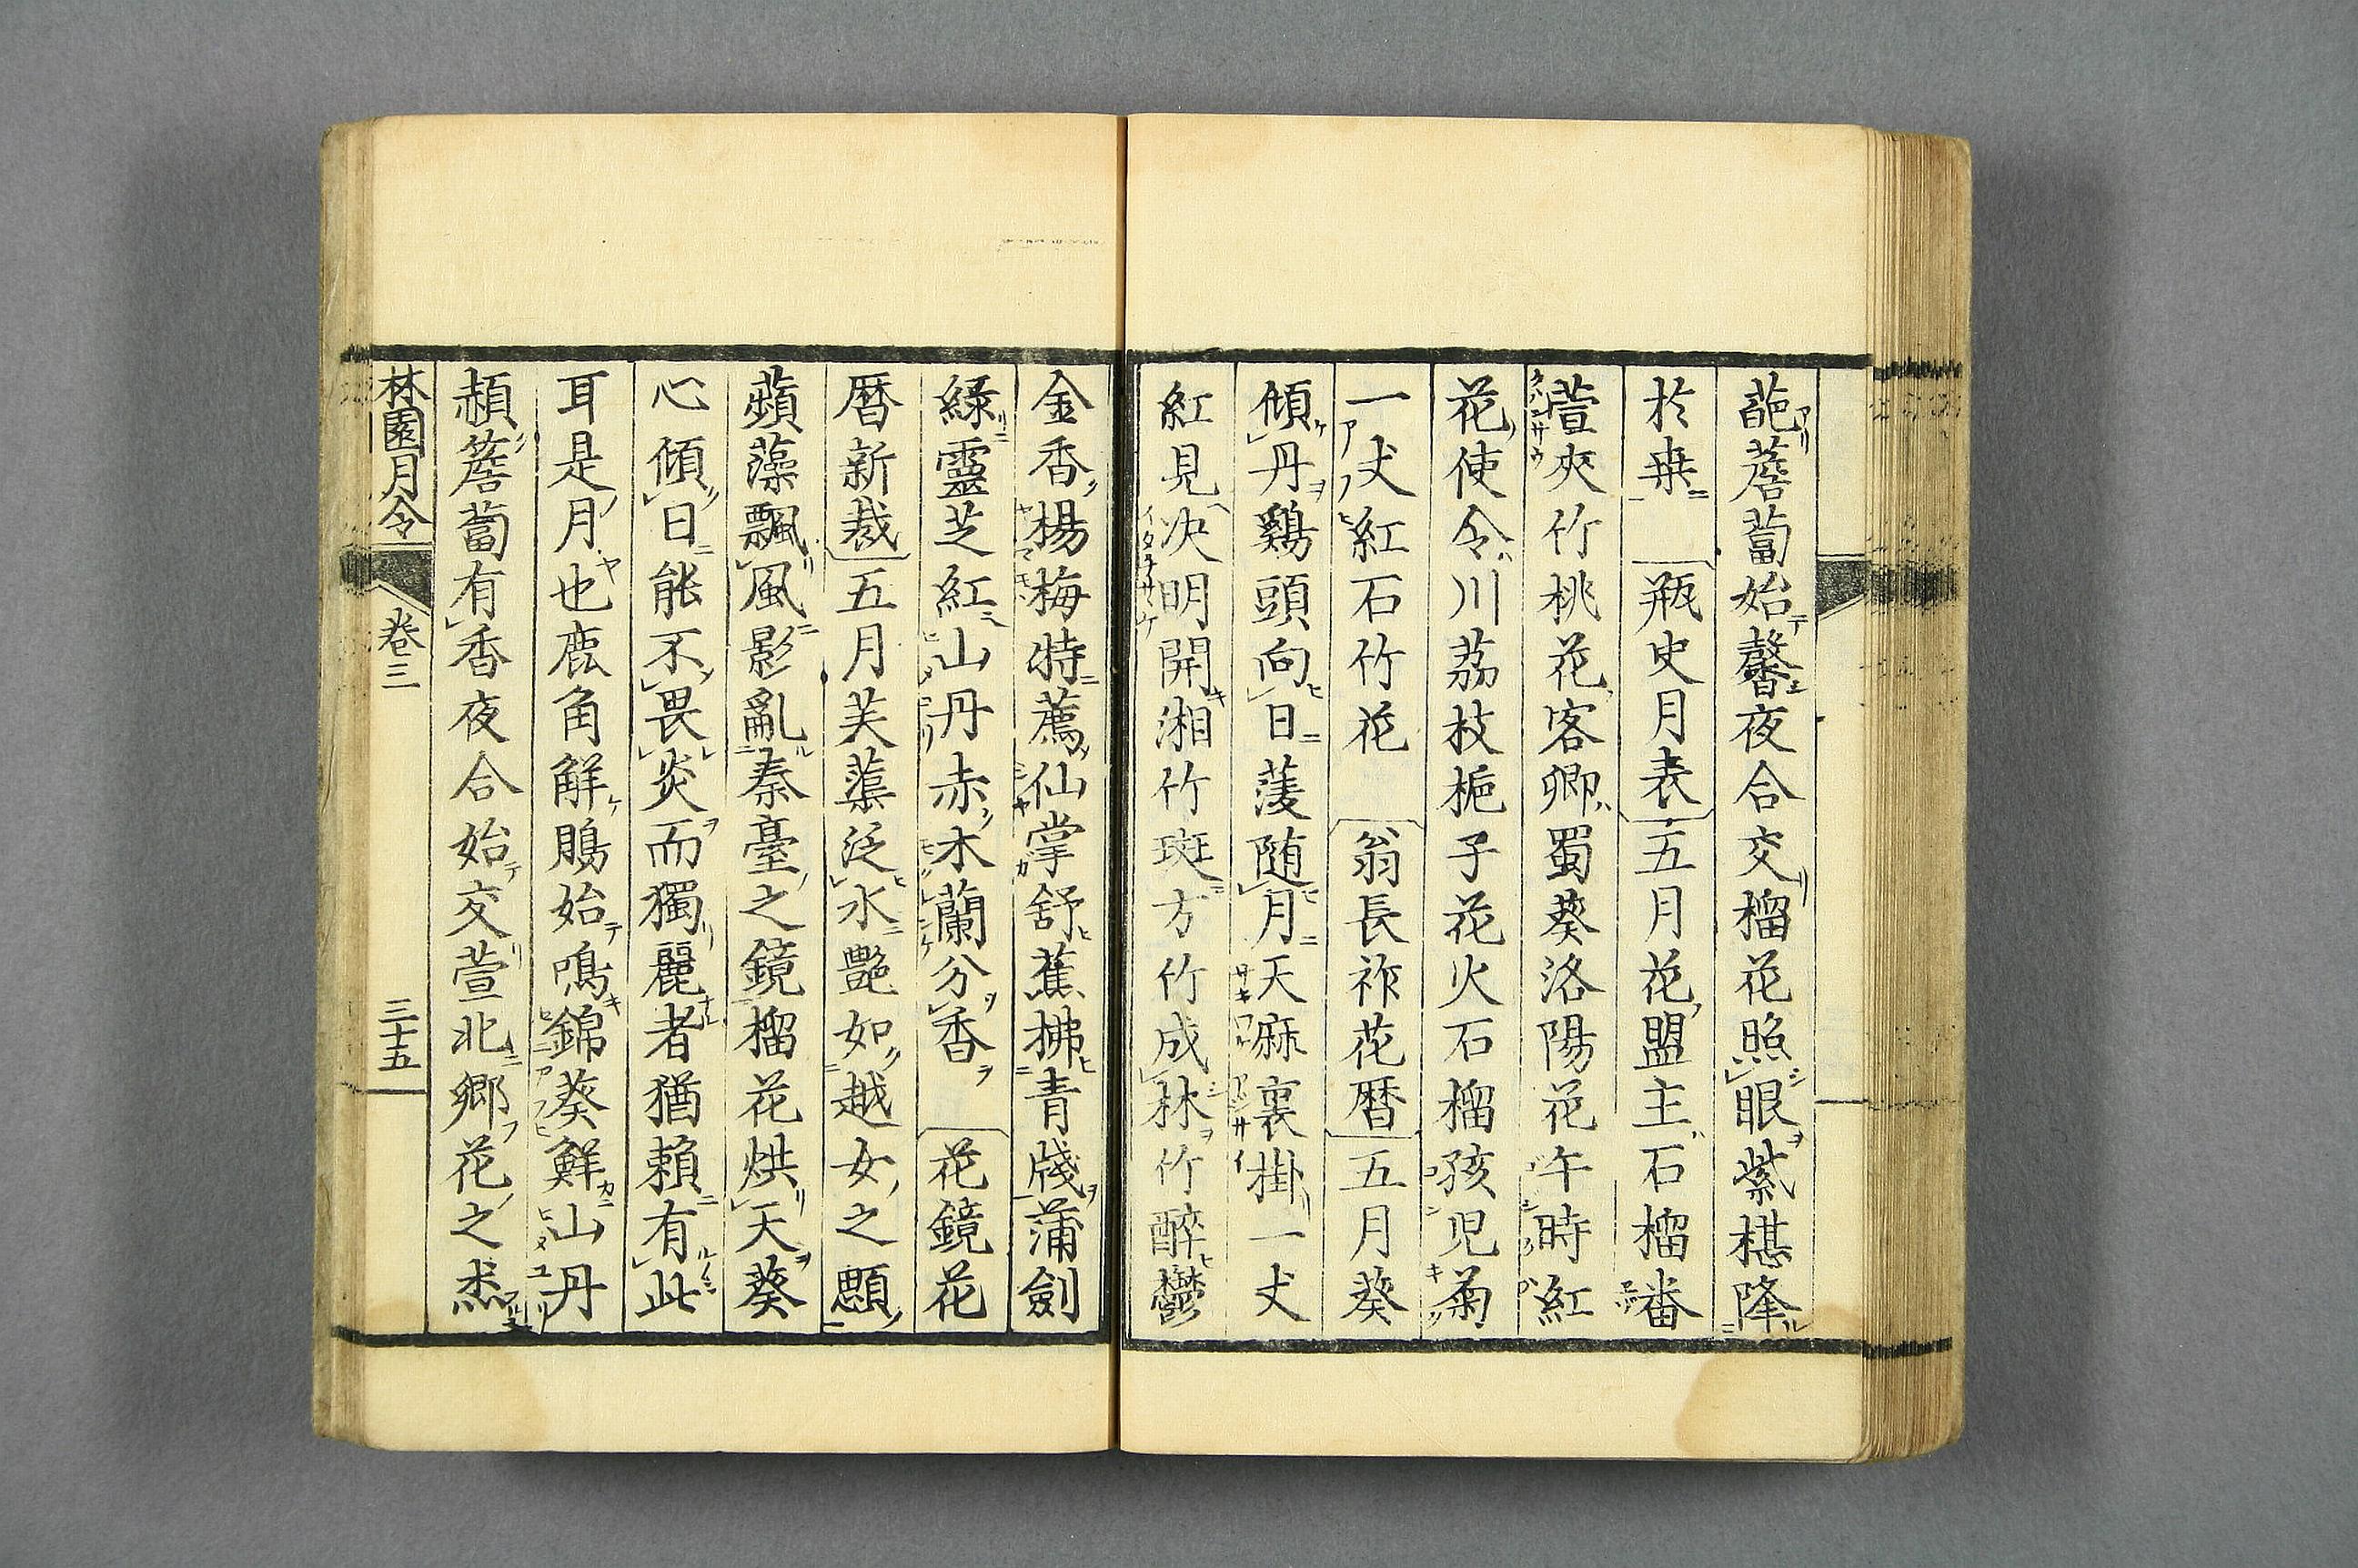 葩薝蔔始馨夜合交榴花照眼紫椹降
於桒　瓶史月表五月花盟主石榴番
萱夾竹桃花客卿蜀葵洛陽花午時紅
花使令川荔枝梔子花火石榴孩児菊
一丈紅石竹花　翁長祚花暦五月葵
傾丹鷄頭向日蓤随月天麻裏掛一丈
紅見决明開湘竹斑方竹成林竹醉鬱
金香楊梅特薦仙掌舒蕉拂青牋蒲劍
緑靈芝紅山丹赤木蘭分香　花鏡花
暦新裁五月芙蕖泛水艶如越女之顋
蘋藻飄風影亂秦臺之鏡榴花烘天葵
心傾日能不畏炎而獨麗者猶頼有此
耳是月也鹿角解鵙始鳴錦葵鮮山丹
頳簷蔔有香夜合始交萱北郷花之杰
林園月令　卷三　三十五